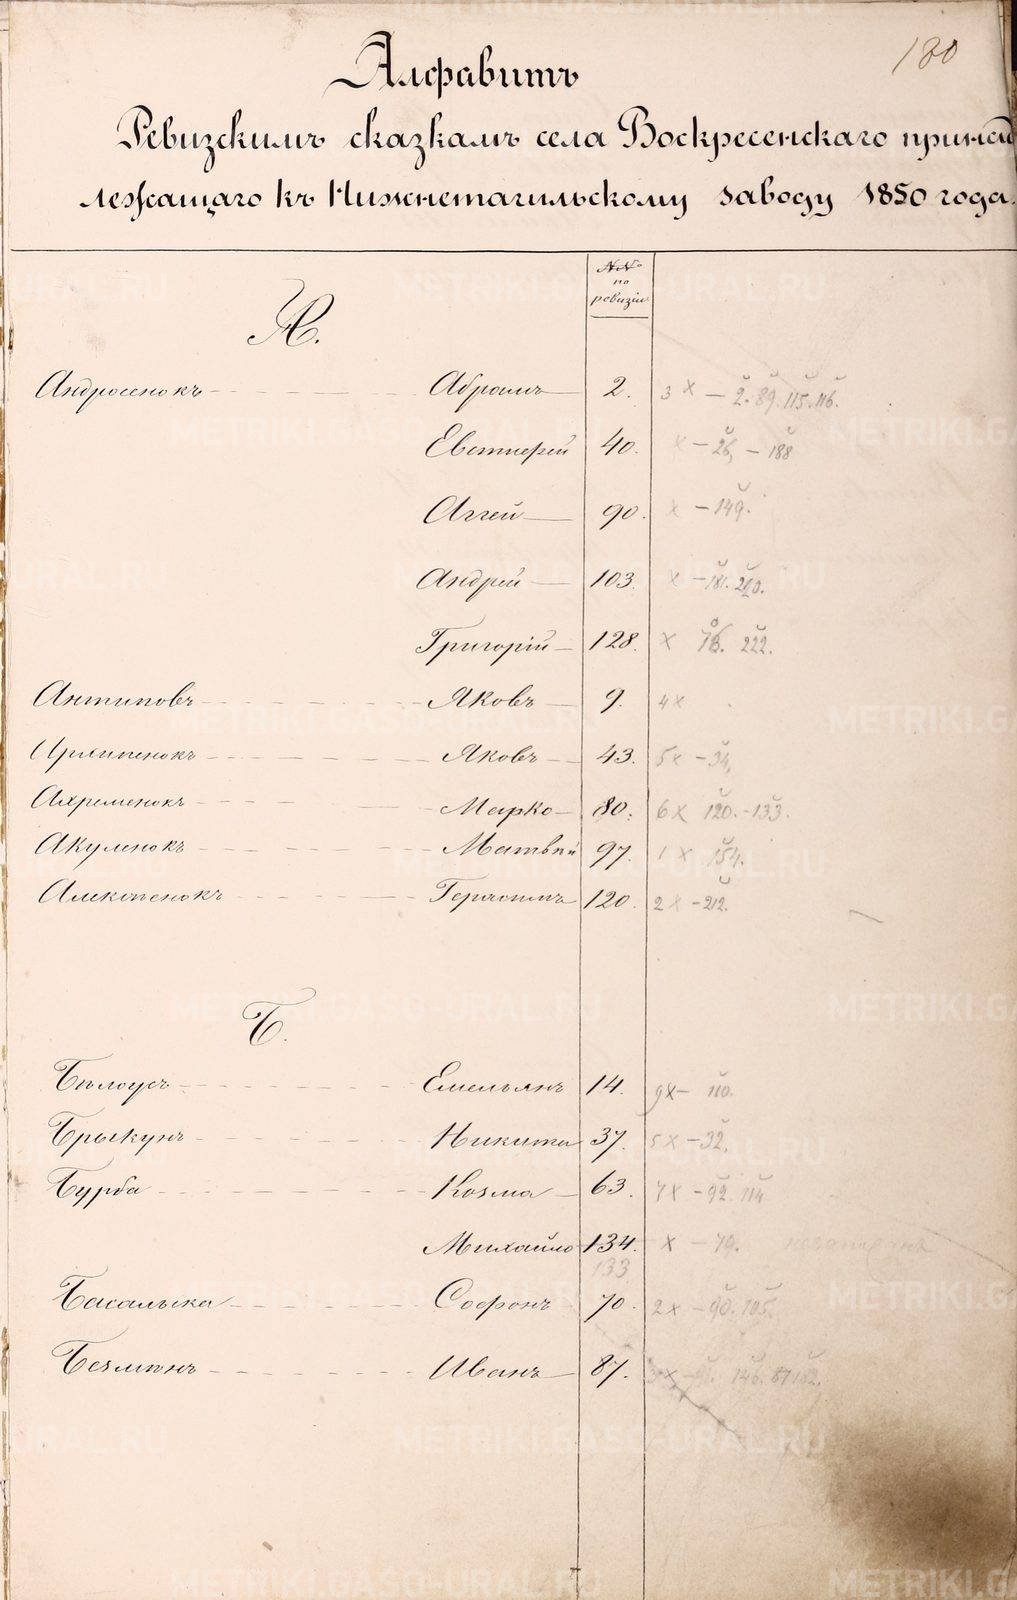 180
Алфавитъ
Ревизскимъ сказкамъ села Воскресенскаго принад
лежащаго къ Нижнетагильскому заводу 1850 года.
№№ по ревизіи
А.
Андросенокъ Абрамъ 2. 3 х – 2. 89. 115. 116.
Евстигней 40. х – 26, – 188
Аггей 90. х – 149.
Андрей 103. х – 181. 200.
Григорій 128. х 222.
Антиповъ Яковъ 9. 4 х
Архипенокъ Яковъ 43. 5 х – 34,
Ахременокъ Марко 80. 6 х 120. – 133.
Акуленокъ Матвѣй 97. 1 х 154.
Герасимъ 120. 2 х – 212.
Б.
Бѣлоусъ Емельянъ 14. 9 х – 110.
Брыкунъ Никита 37. 5 х – 32.
Бурба Козма 63. 7 х – 92. 114.
Михайло 134. х – 79.
133
Басалыка Софонъ 70. 2 х – 90. 105.
Иванъ 87. 146.
METRIKI.GASO-URAL.RU